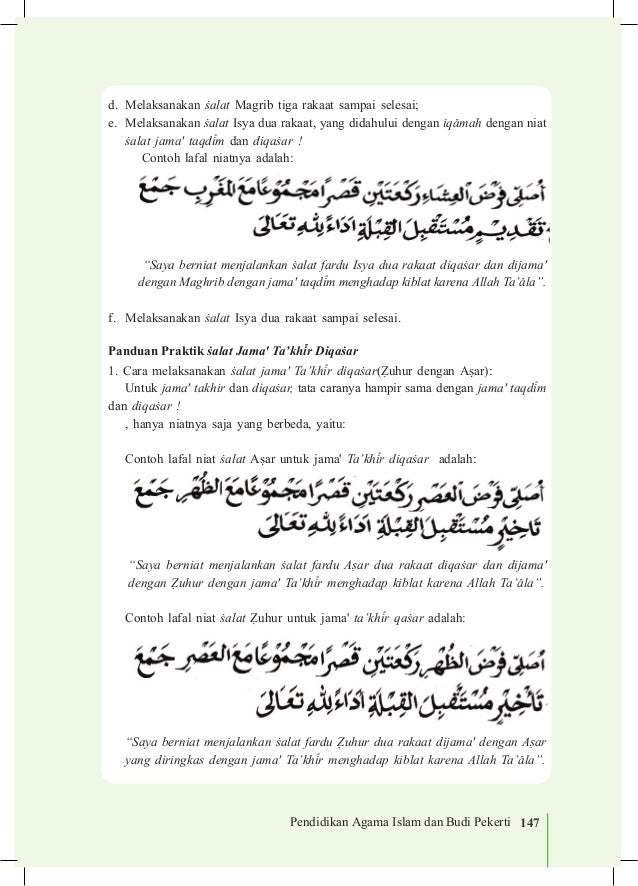 d. Melaksanakan ṡalat Magrib tiga rakaat sampai selesai;
e. Melaksanakan ṡalat Isya dua rakaat, yang didahului dengan iqāmah dengan niat
ṡalat jama' taqdi̅m dan diqaṡar !
Contoh lafal niatnya adalah:
أُصَلِّى فَرْضَ الْعِشَاءِ رَكْعَتَيْنِ قَصْرًا مَجْمُوْعًا مَعَ الْمَغْرِبِ جَمْعَ
تَقْدِيْمٍ مُسْتَقْبِلَ الْقِبْلَةِ اَدَاءً لِلّٰهِ تَعَالَى
“Saya berniat menjalankan ṡalat fardu Isya dua rakaat diqaṡar dan dijama'
dengan Maghrib dengan jama' taqdi̅m menghadap kiblat karena Allah Ta’āla”.
f. Melaksanakan ṡalat Isya dua rakaat sampai selesai.
Panduan Praktik ṡalat Jama' Ta’khi̅r Diqaṡar
1. Cara melaksanakan ṡalat jama' Ta’khi̅r diqaṡar(Ẓuhur dengan Aṣar):
Untuk jama' takhir dan diqaṡar, tata caranya hampir sama dengan jama' taqdi̅m
dan diqaṡar !
, hanya niatnya saja yang berbeda, yaitu:
Contoh lafal niat ṡalat Aṣar untuk jama' Ta’khi̅r diqaṡar adalah:
أُصَلِّى فَرْضَ الْعَصْرِ رَكْعَتَيْنِ قَصْرًا مَجْمُوْعًا مَعَ الظُّهْرِ جَمْعَ
تَاخِيْرٍ مُسْتَقْبِلَ الْقِبْلَةِ اَدَاءً لِلّٰهِ تَعَالَى
“Saya berniat menjalankan ṡalat fardu Aṣar dua rakaat diqaṡar dan dijama'
dengan Ẓuhur dengan jama' Ta’khi̅r menghadap kiblat karena Allah Ta’āla”.
Contoh lafal niat ṡalat Ẓuhur untuk jama' ta’khi̅r qaṡar adalah:
أُصَلِّى فَرْضَ الظُّهْرِ رَكْعَتَيْنِ قَصْرًا مَجْمُوْعًا مَعَ الْعَصْرِ جَمْعَ
تَأْخِيْرٍ مُسْتَقْبِلَ الْقِبْلَةِ اَدَاءً لِلّٰهِ تَعَالَى
“Saya berniat menjalankan ṡalat fardu Ẓuhur dua rakaat dijama' dengan Aṣar
yang diringkas dengan jama' Ta’khi̅r menghadap kiblat karena Allah Ta’āla”.
Pendidikan Agama Islam dan Budi Pekerti 147